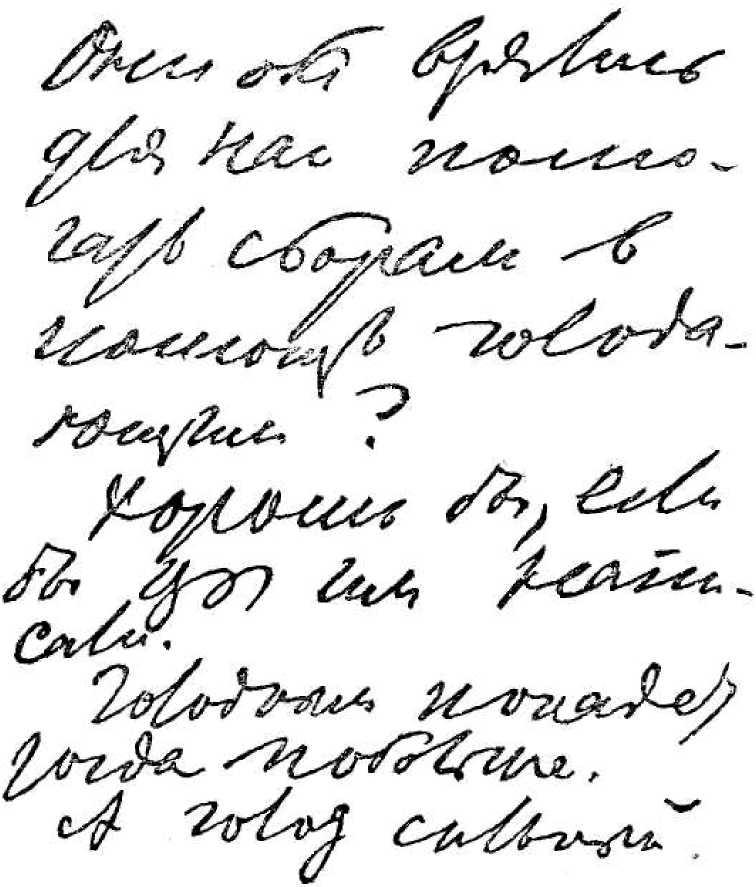 они оба взялись
для нас помо-
гать сборам в
помощь голода-
ющим?
Хорошо бы, если
бы им напи-
сали.
Голодным попадет
тогда побольше.
А голод сильный.